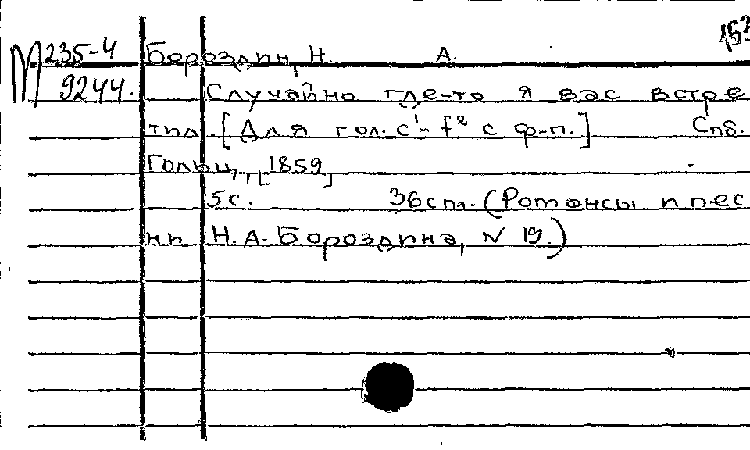 153
М 235-4 Бороздин, Н. А.
9244. Случайно где-то я вас встре
тил. [Для гол. c¹-f² с ф-п.] Спб.
Гольц, [1859]
5с. 36спл. (Романсы и пес
ни Н.А. Бороздина, N 19.)